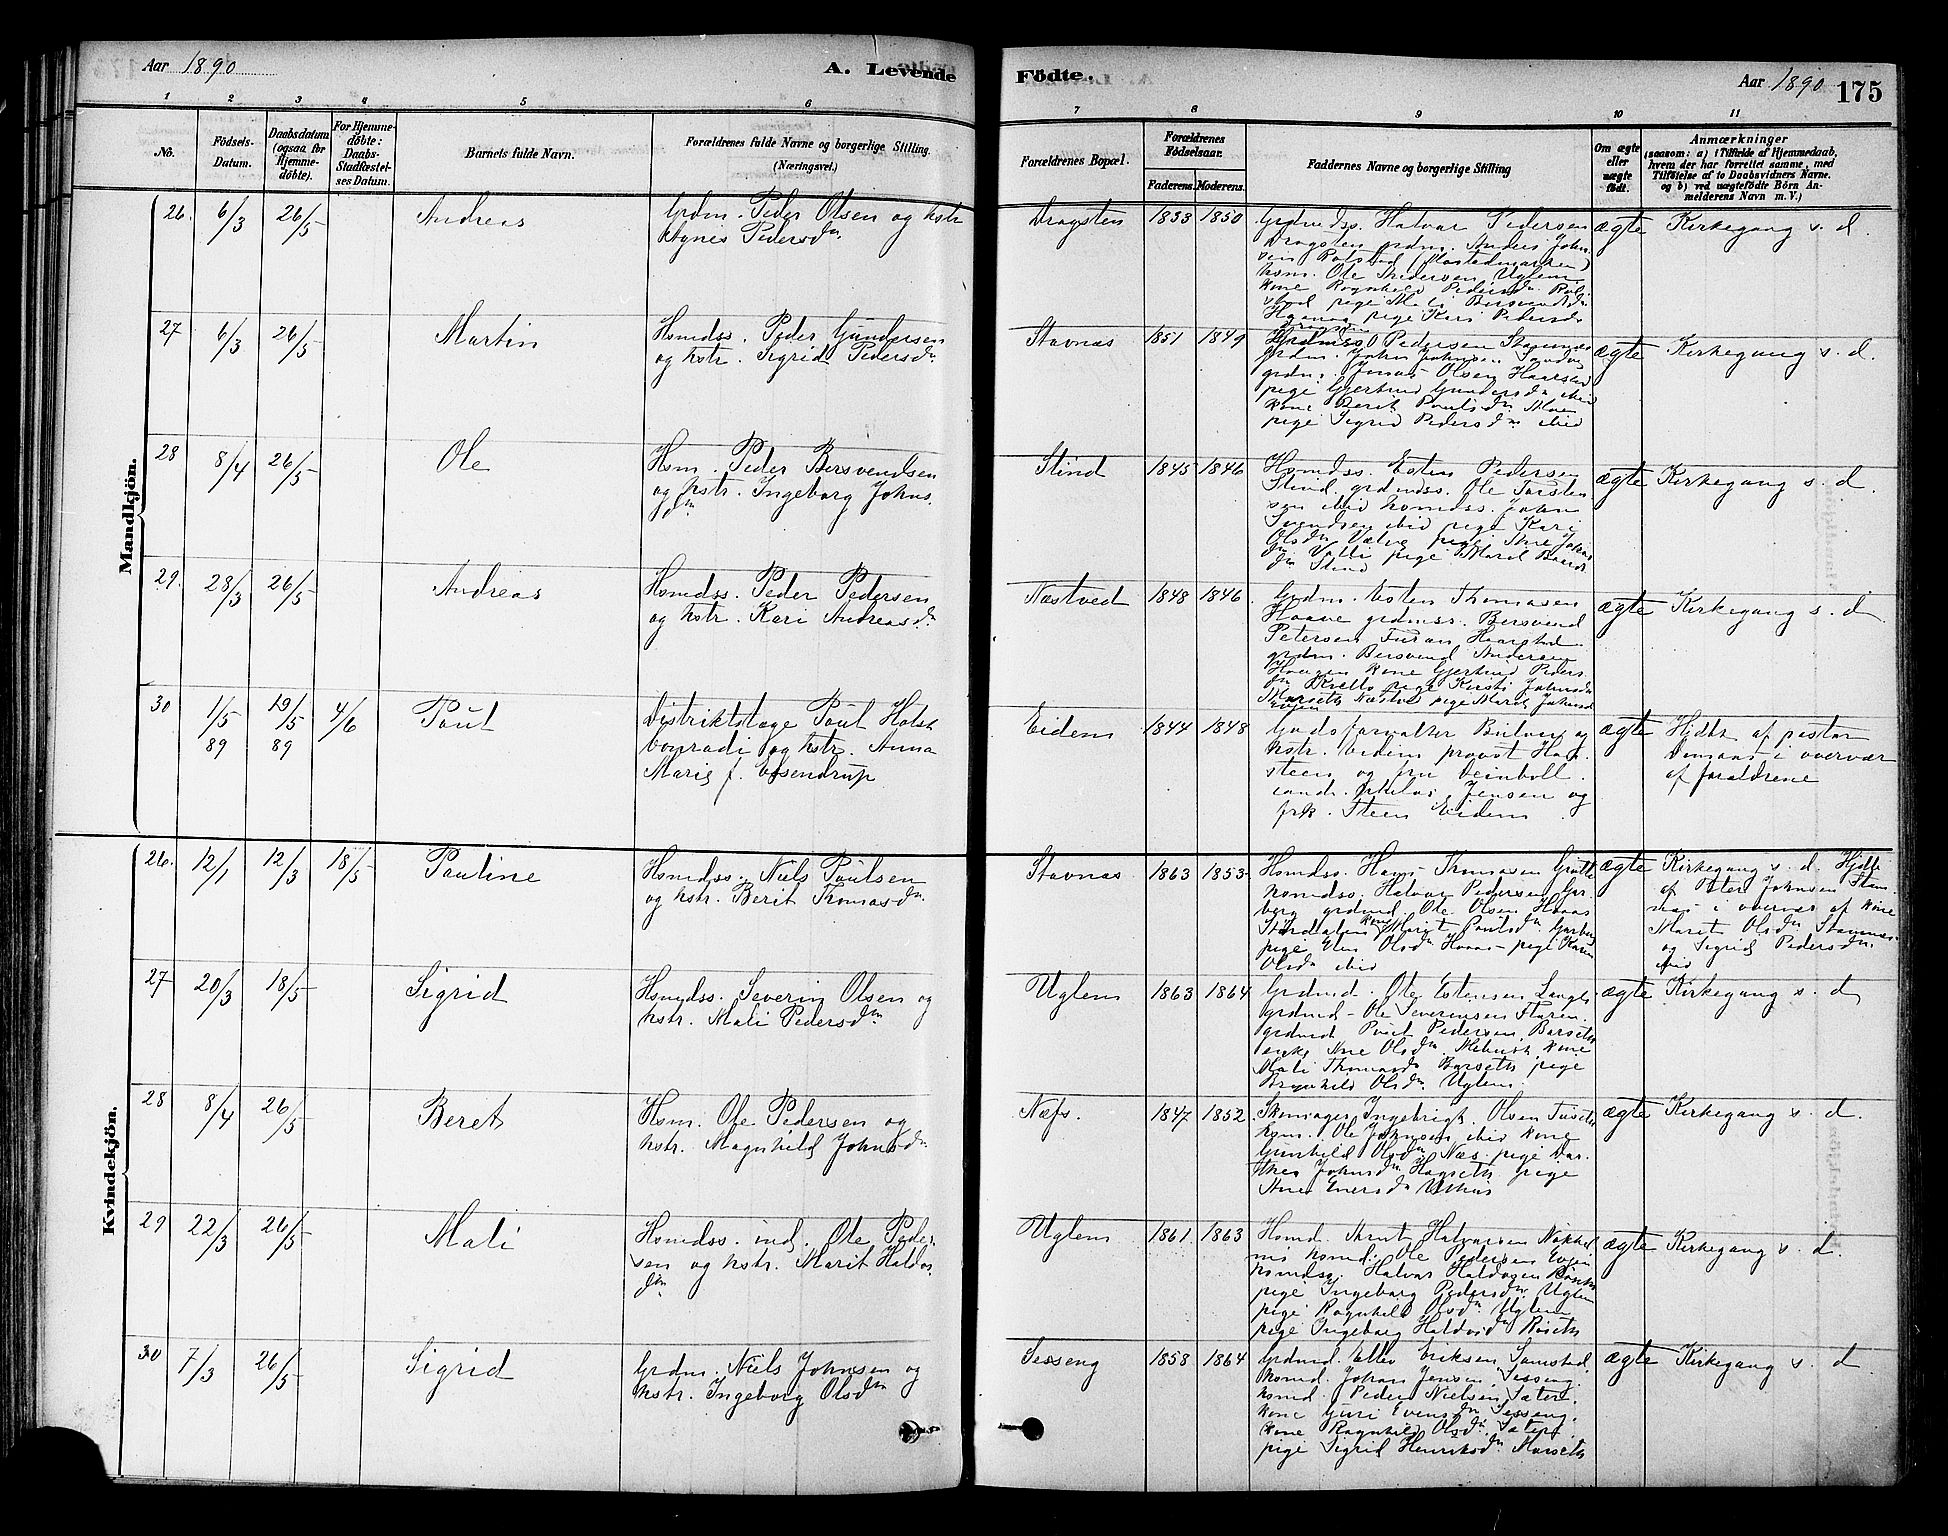 Aar 1890
A. Levende
Födte.
Aar 1890
175
1 2 3 4 5 6
7 8 9 10 11
No.
Födsels-Datum.
Daabsdatum (ogsaa for Hjemmedöbte).
For Hjemmedöbte: Daabs-Stadfæstelses Datum.
Barnets fulde Navn.
Forældrenes fulde Navne og borgerlige Stilling. (Næringsvei.)
Forældrenes Bopæl.
Forældrenes Födselsaar.
Faderens. Moderens.
Faddernes Navne og borgerlige Stilling
Om ægte eller uægte födt.
Anmærkninger
(saasom: a) i Tilfælde af Hjemmedaab, hvem der har forrettet samme, med Tilföielse af to Daabsvidners Navne. og b) ved uægtefödte Börn Anmelderens Navn m. V.)
Mandkjön.
26. 6/3 26/5 Andreas
Grdm. Peder Olsen og hstr
Agnis Pedersdn
Dragsten 1833 1850
Grdmdss. Halvar Pedersen
Dragsten grdm. Anders John
sen Rolstad
hsm. Ole Uglem
kone Ragnhild Pedersdn
pige Mali Bersvendsdn
pige Kari Pedersdn
ægte Kirkegang s. d.
27 6/3 26/5 Martin
Hsmdss. Peder Gundersen
og hstr. Sigrid Pedersdn
Stavnas 1851 1849
Pedersen Stavnas
grdm. John Johnsen
grdm. Jonas Olsen Haarstad
pige Gjertrud Gundersdn ibid
kone Berit Paulsdn
pige Sigrid Pedersdn ibid
ægte Kirkegang s. d.
28 8/4 26/5 Ole
Hsm. Peder Bersvendsen
og hstr. Ingeborg Johns
dn
Stind 1845 1846
Hsmdss. Esten Pedersen
Stind grdmdss. Ole Torsten
sen ibid hsmdss. John
Svendsen ibid pige Kari
Olsdn pige Ane Johns
dn pige Marit
dn Stind
ægte Kirkegang s. d.
29. 28/3 26/5 Andreas
Hsmdss. Peder Pedersen
og hstr. Kari Andreasdn
Næstved 1848 1846
Grdm. Esten Thomasen
Haave grdmss. Bersvend
Petersen Furan Haarstad
grdm. Bersvend Andersen
Haugen kone Gjertrud Peders
dn pige Kirsti Johnsdn
pige Marit Johnsd
ægte Kirkegang s. d
30 1/5 89 19/5 89 4/6 Poul
Distriktslæge Poul Holst
Conradi og hstr. Anna
Marie f. Elsendrup
Eidem 1844 1848
Godsforvalter og
hstr. Eidem provst Han
steen og fru
cand. Jensen og
frk. Steen Eidem
ægte Hjdbt af pastor
i overvær
af forældrene
Kvindekjön.
26. 12/1 12/3 18/5 Pauline
Hsmdss. Niels Poulsen
og hstr. Berit Thomasdn
Stavnas 1863 1853
Hsmdss. Hans Thomasen
hsmdss. Halvar Pedersen Gar
berg grdmd. Ole Olsen Haaas
Stordalen kone Marit Paulsdn Garberg
pige Elen Olsdn Haaas pige Karen
Olsdn ibid
ægte Kirkegang s. d. Hjdbt
af Peter Johnsen Stav
nas i overvær af kone
Marit Olsdn Stavnas
og Sigrid Pedersdn
ibid
27 20/3 18/5 Sigrid
Hsmdss. Severin Olsen og
hstr. Mali Pedersdn
Uglem 1863 1864
Grdmd. Ole Estensen
grdmd. Ole Severinsen
grdmd. Poul Pedersen Barseth
enke Ane Olsdn kone
Mali Thomasdn Barseth pige
Brynhild Olsdn Uglem
ægte Kirkegang s. d
28 8/4 26/5 Beret
Hsm. Ole Pedersen og
hstr. Magnhild Johnsdn
Næss. 1847 1852.
Skomager Ingebrigt Olsen Tuseth
hsm. Ole Johnsen ibid kone
Gunhild Olsdn Næs pige Dar
thea Johnsdn Hagseth pige
Ane Evensdn Uthus
ægte Kirkegang s. d.
29 22/3 26/5 Mali
Hsmdss. ind. Ole Peder
sen og hstr. Marit Haldos
dn
Uglem 1861 1863
Hsmd. Arnt Halvarsen
hsmd. Ole Pedersen Evjen
hsmdss. Halvar Haldosen Røseth
pige Ingeborg Pedersdn Uglem
pige Ragnhild Olsdn Uglem
pige Ingeborg Haldosd Røseth
ægte Kirkegang s. d.
30 7/3 26/5 Sigrid
Grdm. Niels Johnsen og
hstr. Ingeborg Olsdn
Sesseng 1858 1864
Grdmd. Ellev Eriksen Samstad
hsmd. Johan Jensen Sesseng
hsmd. Peder Nielsen Sæter
kone Guri Evensdn Sesseng
kone Ragnhild Olsdn Sæter
pige Sigrid Henriksdn Morseth
ægte Kirkegang s. d